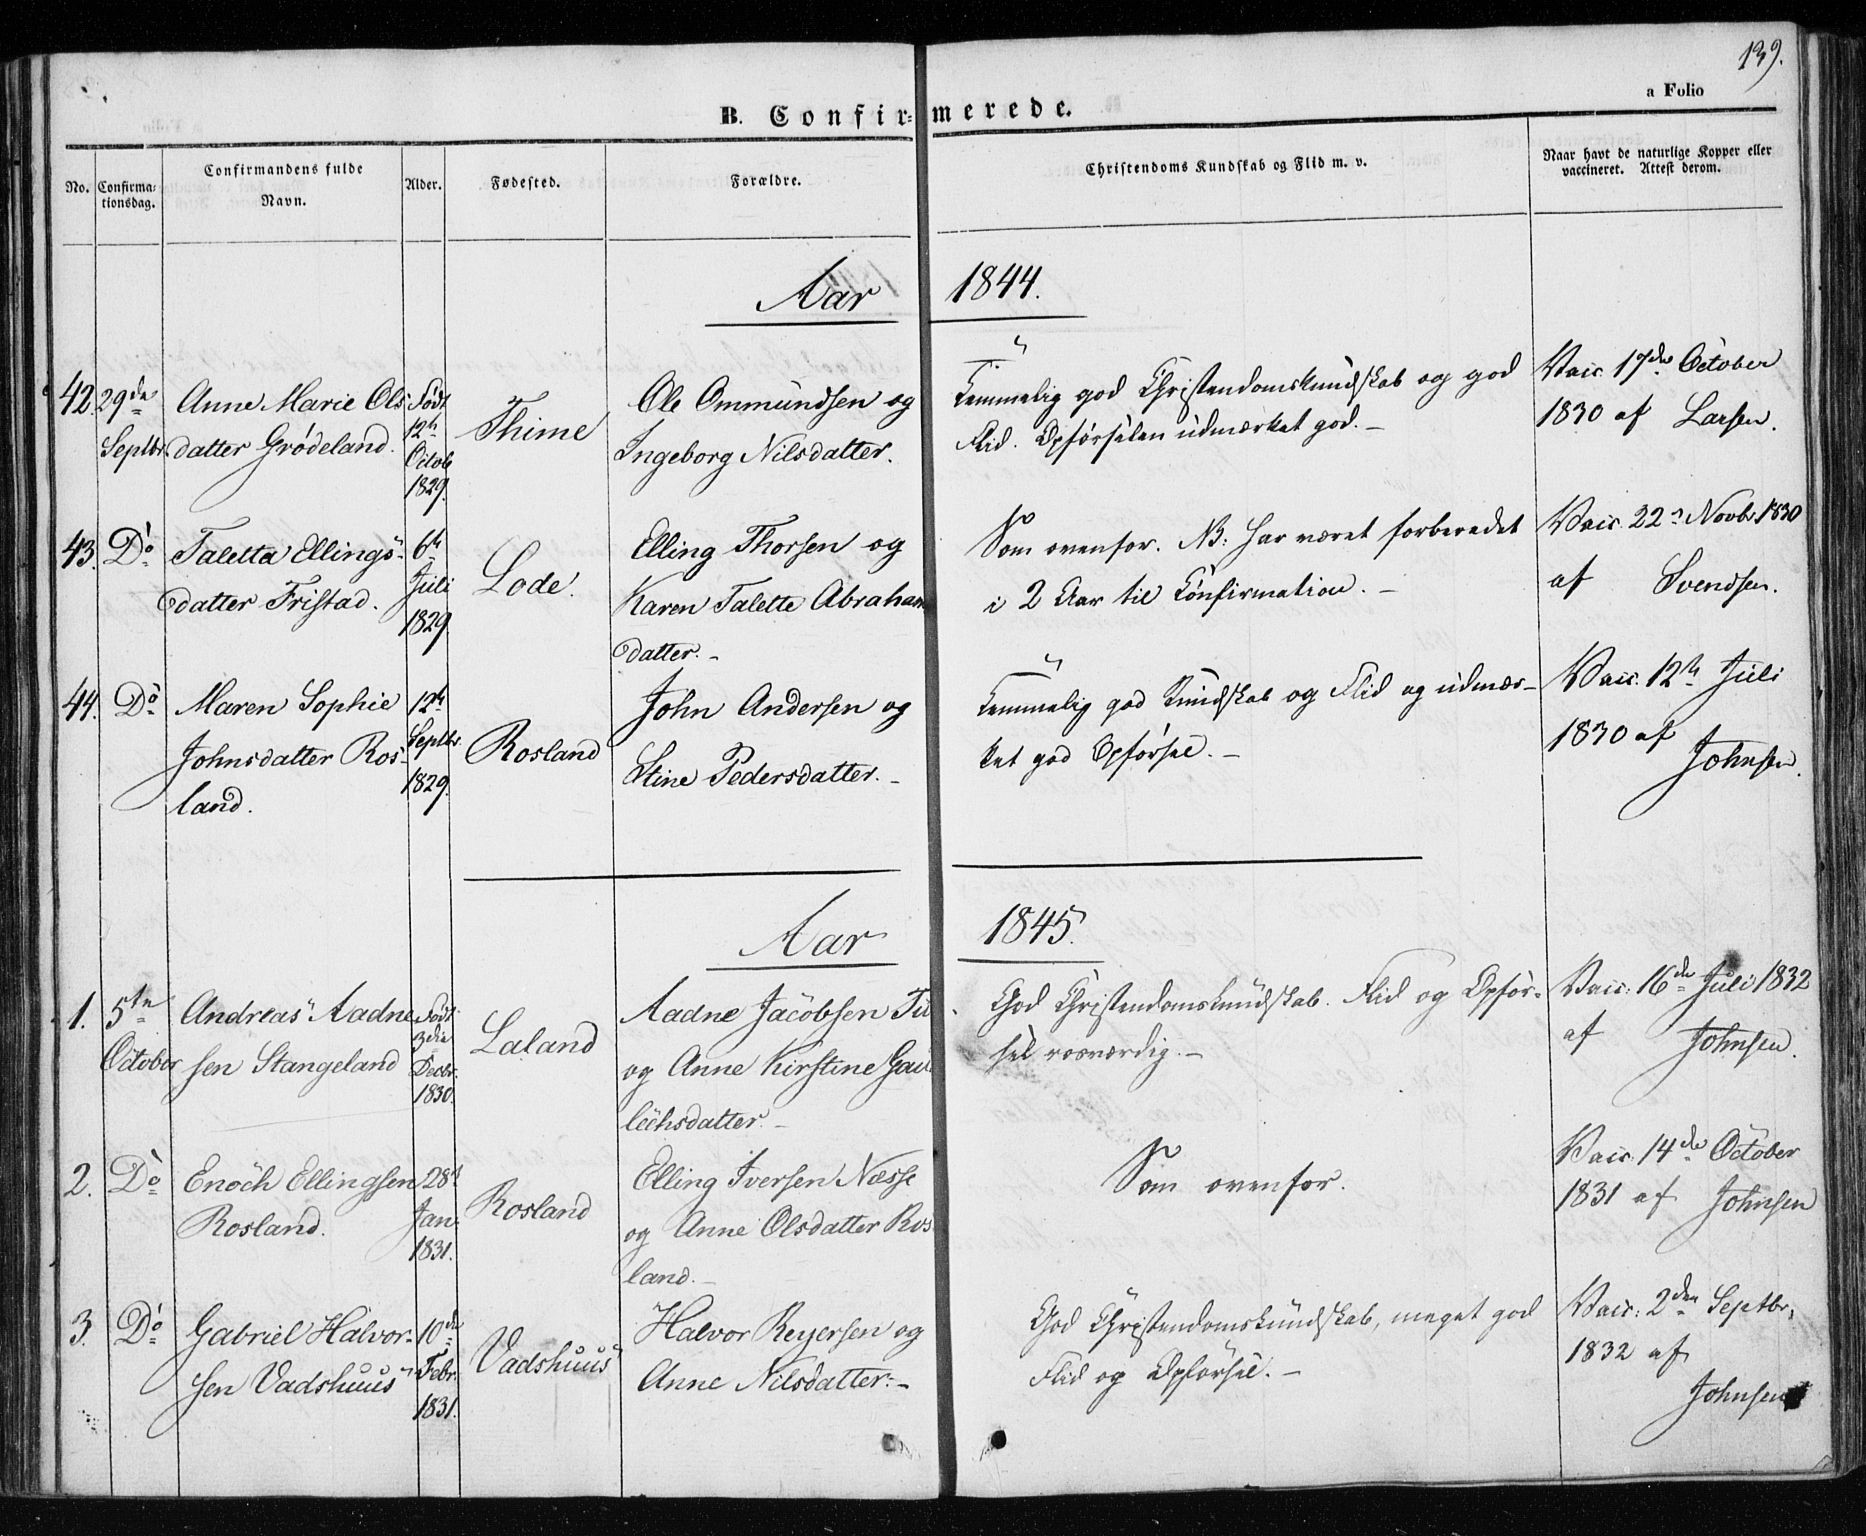 139.
a Folio
B. Confir=merede.
No.
Confirma=
tionsdag.
Confirmandens fulde
Navn.
Alder.
Fødested.
Forældre.
Christendoms Kundskab og Flid m. v.
Naar havt de naturlige Kopper eller
vaccineret. Attest derom.
Aar 1844.
42
29de
Septbr.
Anne Marie Ols-
datter Grødeland.
Født
12te
Octob.
1829.
Thime
Ole Ommundsen og
Ingeborg Nilsdatter.
Temmelig god Christendomskundskab og god
Flid. Opførselen udmærket god. -
Vacc. 17de October
1830 af Larsen.
43.
Do
Taletta Ellings-
datter Fristad.
6te
Juli
1829.
Lode.
Elling Thorsen og
Karen Talette Abraham
datter. -
Som ovenfor. NB: har været forberedet
i 2 Aar til Confirmation. -
Vacc. 22de Novbr 1830
af Svendsen.
44.
Do
Maren Sophie
Johnsdatter Ros-
land.
12te
Septbr.
1829.
Rosland
John Andersen og
Stine Pedersdatter. -
Temmelig god Kundskab og Flid og udmær-
ket god Opførsel. -
Vacc. 12te Juli
1830 af
Johnsen.
Aar 1845.
1.
5te
October
Andreas Aadne
sen Stangeland
Født
3die
Decbr.
1830.
Laland
Aadne Jacobsen Tu
og Anne Kirstine Gau
lichsdatter. -
God Christendomskundskab. Flid og Opfør-
sel rosværdig. -
Vacc. 16de Juli 1832
af Johnsen.
2.
Do
Enoch Ellingsen
Rosland.
28de
Jan.
1831.
Rosland
Elling Iversen Næsse
og Anne Olsdatter Ros
land. -
Som ovenfor.
Vacc. 14de October
1831 af Johnsen
3.
Do
Gabriel Halvor-
sen Vadshuus
10de
Febr.
1831.
Vadshuus
Halvor Reyersen og
Anne Nilsdatter. -
God Christendomskundskab, meget god
Flid og Opførsel. -
Vacc. 2den Septbr.
1832 af
Johnsen